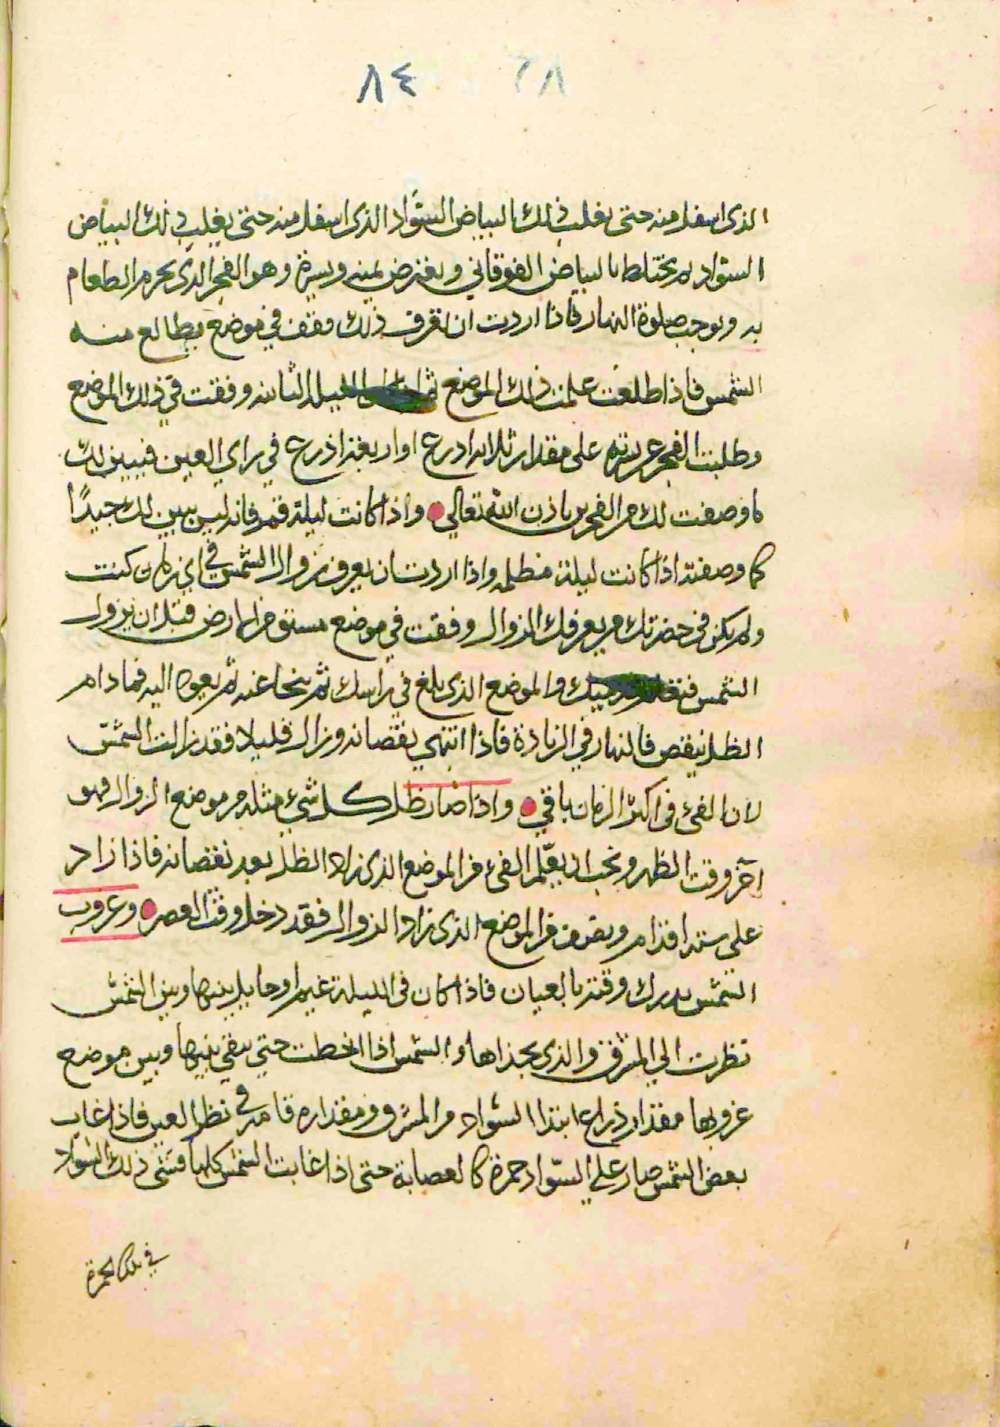 ٨٤ ٦٨
الذى اسفل منه حتى يغلب ذلك البياض السّواد الذى اسفل منه حتى يغلب ذلك البياض
السّواد ثم يختلط بالبياض الفوقاني ويعترض يمنه ويسرة وهو الفجر الذى يحرم الطعام
به ويوجب صلوة النهار فاذا اردت ان تعرف ذلك فقف في موضع مطالع منه
الشمس فاذا طلعت علمت ذلك الموضع الليلة الثانيه وقفت في ذلك الموضع
وطلبت الفجر على مقدار ثلاثه اذرع او اربعة اذرع في راي العين فيبين لك
ما وصفت لك من الفجرين باذن الله تعالي واذا كانت ليلة قمر فانه ليس يبين لك جيدًا
كما وصفته اذا كانت ليلة مظلمه واذا اردت ان تعرف زوال الشمس في اي زمان كنت
ولم يكن في حضرتك من يعرفك الزوال وقفت في موضع مستو من الارض قبل ان يزول
الشمس والموضع الذى بلغ في راسك ثم تنحا عنه ثم يعود اليه فما دام
الظل ينقص فالنهار في الزيادة فاذا انتهي نقصانه وزال قليلا فقد زالت الشمس
لان الفئ في اكثر الزمان باقي واذا صار ظل كل شئ مثله من موضع الزوال فهو
اخر وقت الظهر ويجب ان يعلم الفئ من الموضع الذى زاد الظل بعد نقصانه فاذا زاد
على سته اقدام ونصف من الموضع الذى زاد الزوال فقد دخل وقت العصر وغروب
الشمس يدرك وقته بالعيان فاذا كان في الليلة غيم او حايل بينها وبين الشمس
نظرت الي المشرق والذى بحذاها والشمس اذا انحطت حتي يبقي بينها وبين موضع
غروبها مقدار ذراع ابتدا السّواد من المشرق ومقداره قامه في نظر العين فاذا غاب
بعض الشمس صار علي السّواد حمرة كالعصابة حتى اذا غابت الشمس كلها فشى ذلك السّواد
في تلك الحمرة